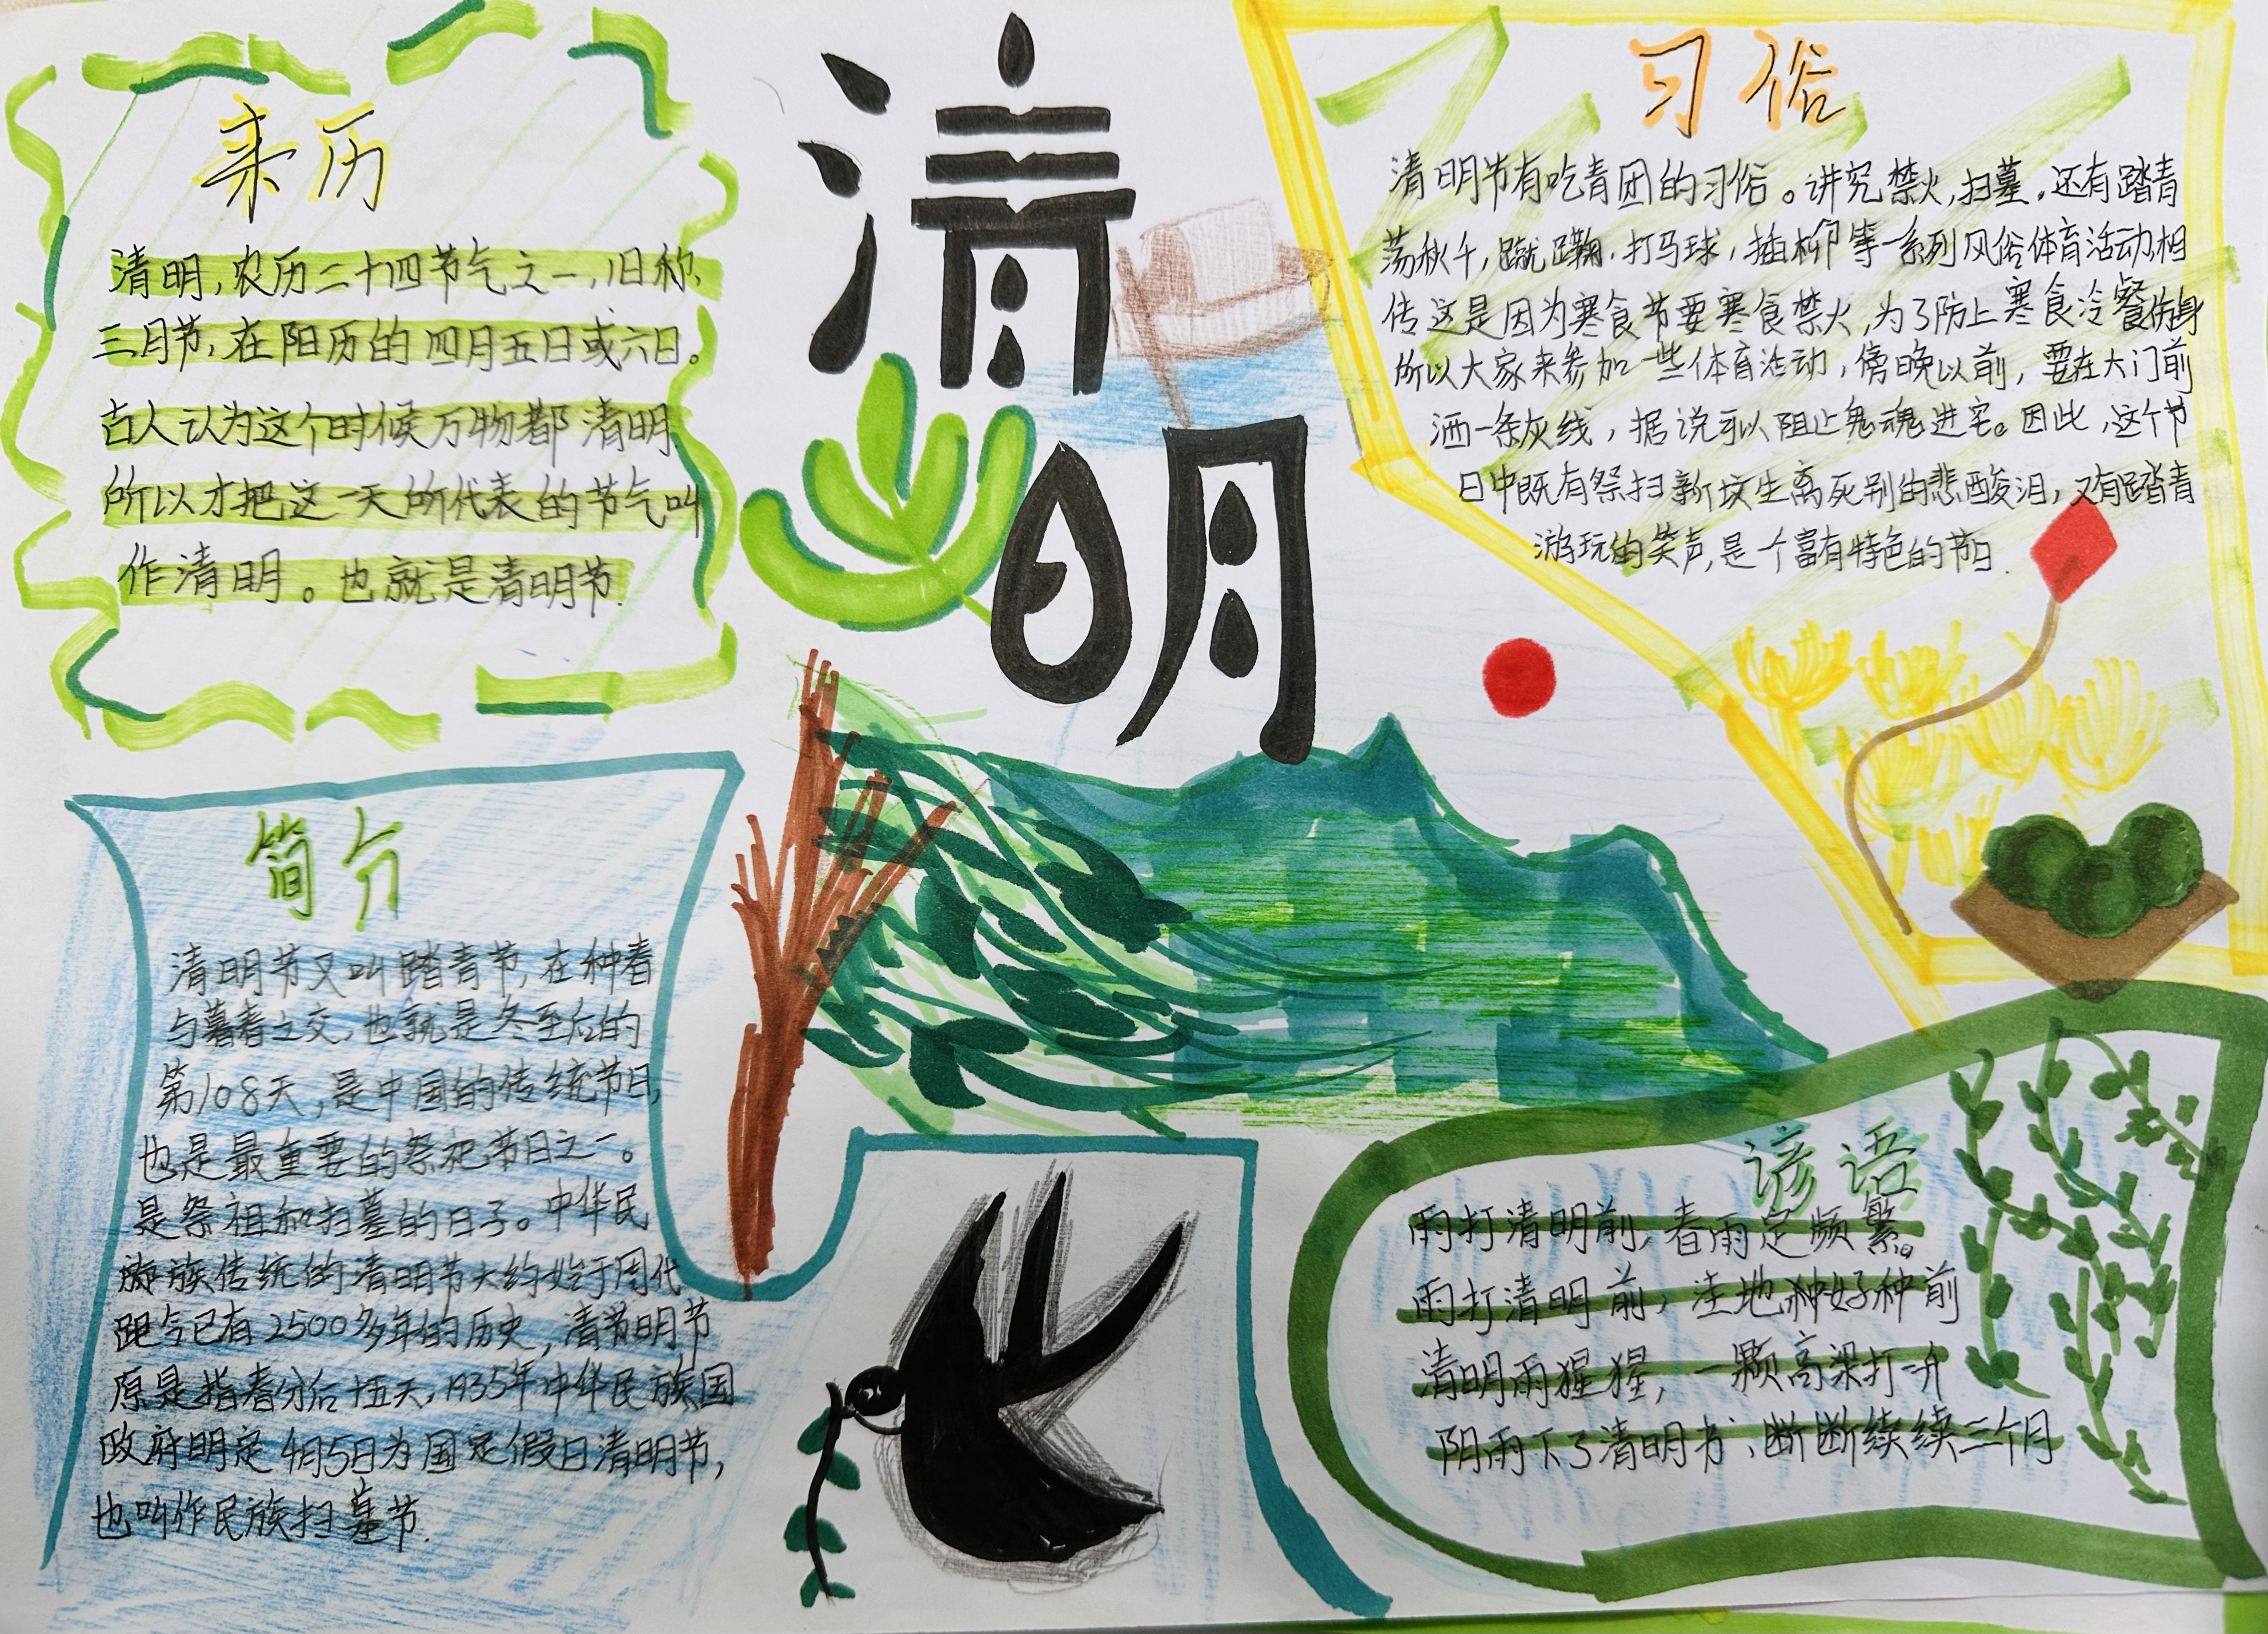 清明
来历
清明，农历二十四节气之一，旧称，
三月节，在阳历的四月五日或六日。
古人认为这个时候万物都清明
所以才把这一天所代表的节气叫
作清明。也就是清明节.
习俗
清明节有吃青团的习俗。讲究禁火,扫墓,还有踏青
荡秋千,蹴鞠,打马球,插柳等一系列风俗体育活动,相
传这是因为寒食节要寒食禁火,为了防止寒食冷餐伤身
所以大家来参加一些体育活动,傍晚以前,要在大门前
洒一条灰线,据说可以阻止鬼魂进宅。因此,这个节
日中既有祭扫新坟生离死别的悲酸泪,又有踏青
游玩的笑声,是个富有特色的节日.
简介
清明节又叫踏青节,在种春
与暮春之交,也就是冬至后的
第108天,是中国的传统节日,
也是最重要的祭祀节日之一。
是祭祖和扫墓的日子。中华民
族传统的清明节大约始于周代
距今已有2500多年的历史,清明节
原是指春分后十五天,1935年中华民族国
政府明定4月5日为国定假日清明节,
也叫作民族扫墓节.
谚语
雨打清明前,春雨定频繁。
雨打清明前,洼地种好种前
清明雨猩猩,一颗高梁打一升
阴雨下了清明节、断断续续三个月